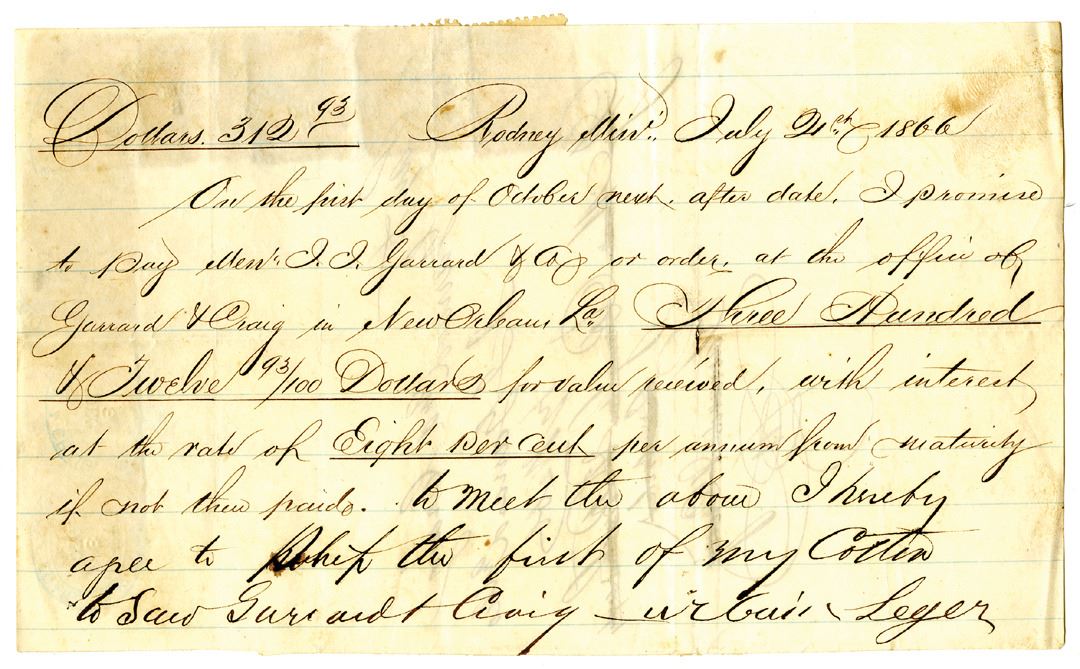 Dollars. 312 93 Rodney Miss. July 21st 1866
On the first day of October next, after date, I promise
to Pay Mess. I. I. Garrard & Co or order, at the office of
Garrard & Craig in New Orleans La. Three Hundred
& Twelve 93/100 Dollars for value received, with interest
at the rate of Eight per cent per annum from maturity
if not then paid. to meet the above I hereby
agree to Ship the first of my Cotton
to Said Garrard & Craig Urbain Leger